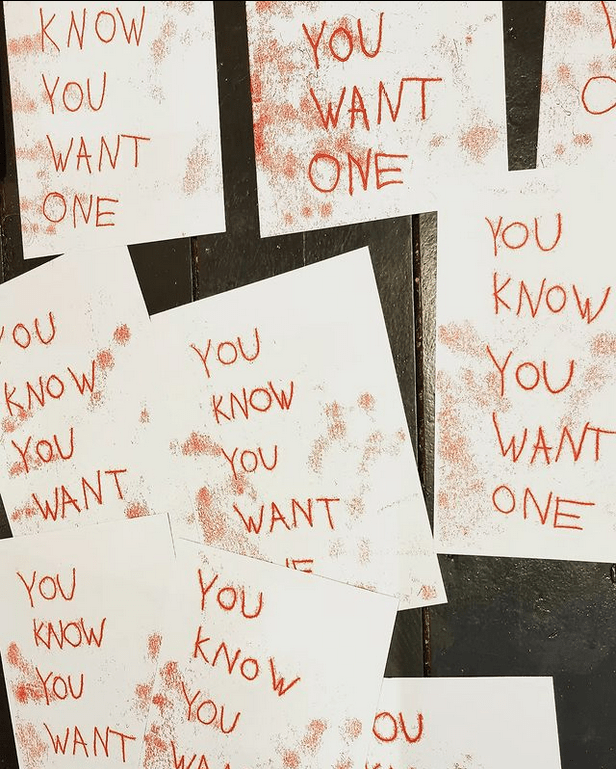 KNOW
YOU
WANT
ONE
YOU
WANT
ONE
YOU
KNOW
YOU
WANT
ONE
YOU
KNOW
YOU
WANT
YOU
KNOW
YOU
WANT
YOU
KNOW
YOU
WANT
YOU
KNOW
YOU
OU